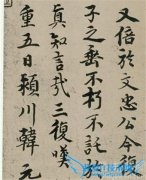 又倍於文忠公今復
子之垂不朽不託於
真知言哉三復嘆
重五日潁川韓元